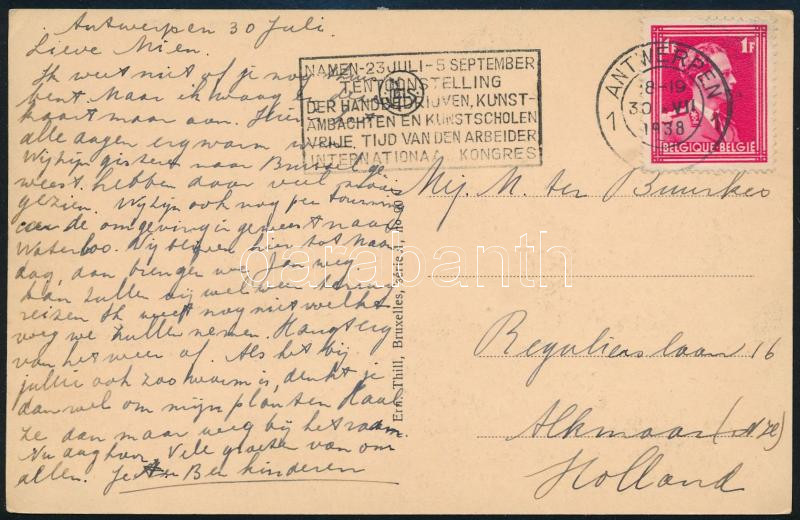 Antwerpen 30 Juli.
Lieve Mien.
Ik weet niet of je nog
bent. Maar ik waag
kaart maar aan. Hier
alle dagen erg warm
Wij zijn gisteren naar Brussel ge-
weest, hebben daar veel moois
gezien. Wij zijn ook nog per touring
car de omgeving in geweest naar
Waterloo. Wij blijven hier tot Maan
dag, dan brengen we Jan weg.
Dan zullen wij wel weer terug
reizen. Ik weet nog niet welke
weg we zullen nemen. Hangt erg
van het weer af. Als het bij
jullie ook zoo warm is, denkt je
dan wel om mijn planten. Haal
ze dan maar weg bij het raam.
Nu dag hoor, Vele groeten van ons
allen. Je Ber kinderen
NAMEN-23 JULI-5 SEPTEMBER
TENTOONSTELLING
DER HANDBEDRIJVEN, KUNST-
AMBACHTEN EN KUNSTSCHOLEN
VRIJE TIJD VAN DEN ARBEIDER
INTERNATIONAAL KONGRES
ANTWERPEN
1 1
18-19
30 VII
1938
1F
BELGIQUE-BELGIE
Ern. Thill, Bruxelles, Série 1, no 60
Mej. M. ter Buurkes
Regulierslaan 16
Alkmaar (N.H)
Holland
darabanth